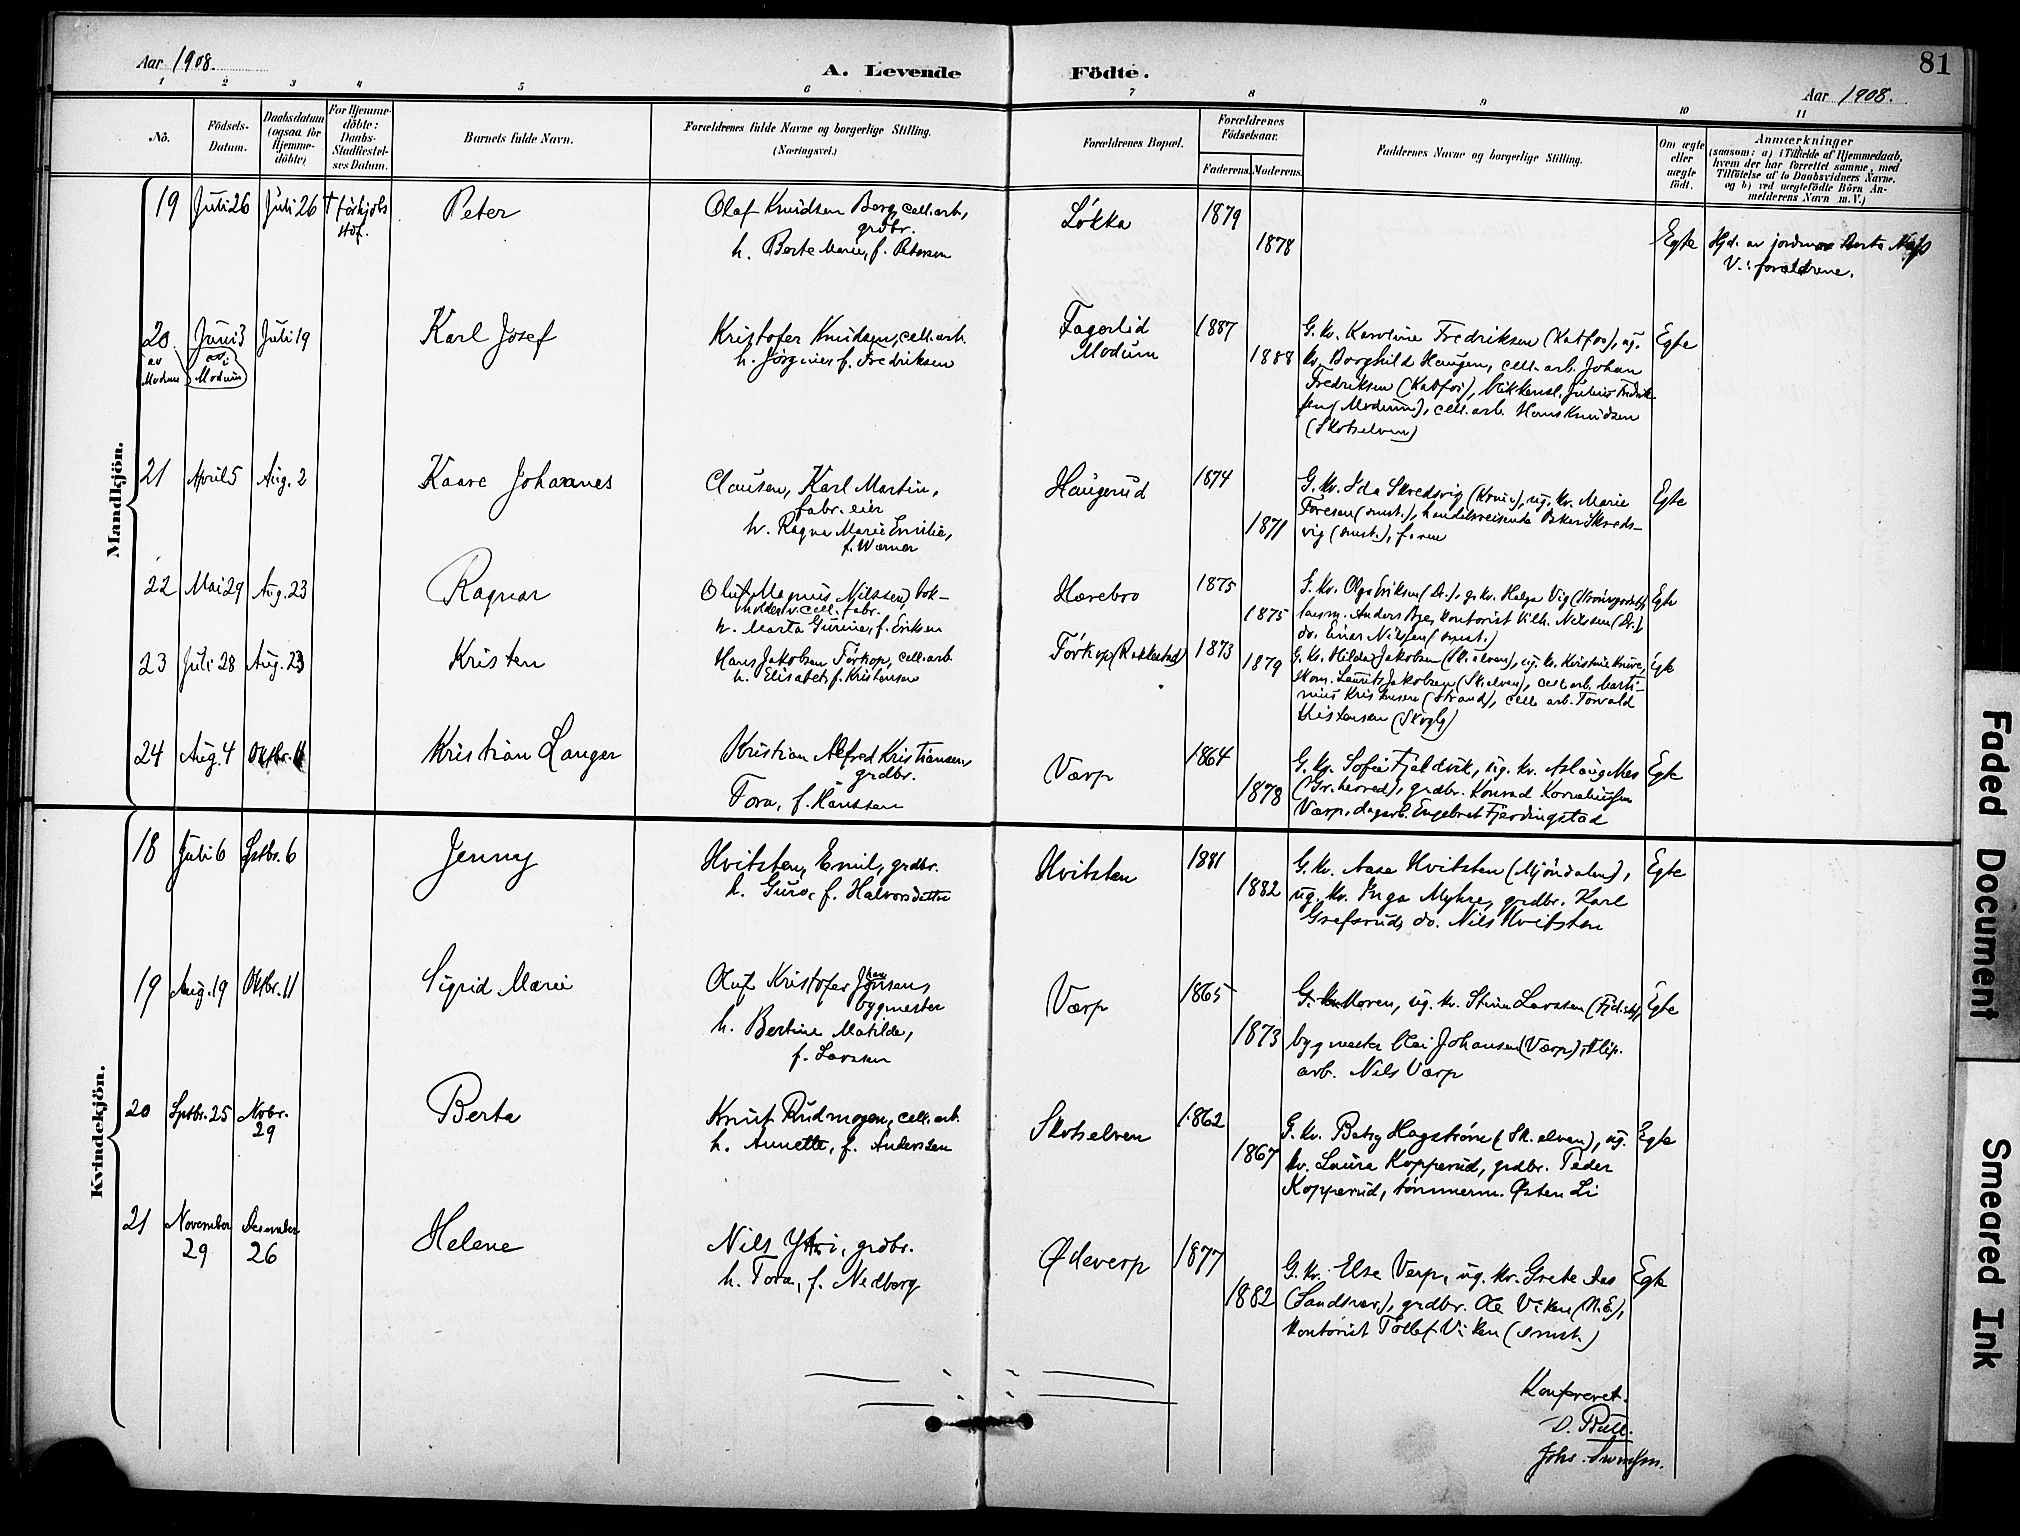 81
Aar 1908.
A. Levende Födte.
Aar 1908.
1 2 3 4 5 6 7 8 9 10 11
Nö.
Födsels-
Datum.
Daabsdatum
(ogsaa for
Hjemme-
döbte)
For Hjemme-
döbte:
Daabs-
Stadfæstel-
ses Datum.
Barnets fulde Navn.
Forældrenes fulde Navne og borgerlige Stilling.
(Næringsvei.)
Forældrenes Bopæl.
Forældrenes
Födselsaar.
Faderens. Moderens.
Faddernes Navne og borgerlige Stilling.
Om ægte
eller
uægte
födt.
Anmærkninger
(saasom: a) i Tilfælde af Hjemmedaab,
hvem der har forrettet samme, med
Tilföielse af to Daabsvidners Navne.
og b) ved uægtefödte Börn An-
melderens Navn m. V.)
Mandkjön.
19 Juli 26 Juli 26
Peter
Olaf Knudsen Berg, cell.arb,
grdbr.
h. Berte Marie, f. Petersen
Løkka
1879
1878
Egte
Hjd. av jordmor Berte
V.: forældrene.
20 Juni 3 Juli 19
av
Modum
Karl Josef
Kristofer Knudsen, cell.arb.
h. Jørgine, f. Fredriksen
Fagerlid
Modum
1887
1888
G. kv. Karoline Fredriksen (Katfos), ug.
kv. Borghild Haugen, cell. arb. Johan
Fredriksen (Katfos),
(Modum), cell.arb. Hans Knudsen
(Skotselven)
Egte
21 April 5 Aug. 2
Kaare Johannes
Clausen, Karl Martin,
fabr. eier
h. Ragna Marie Emilie,
f. Wærner
Haugerud
1874
1871
G. kv. Ida Skredsvig, ug. kv. Marie
(smst.), handelsreisende Skreds-
vig (smst.),
Egte
22 Mai 29 Aug. 23
Ragnar
Oluf Magnus Nilssen, bok-
holder v. cell. fabr.
h. Marta Gurine, f. Eriksen
Hærebro
1875
1875
G. kv. Olga Eriksen (Dr.), g. kv. Helga Vig
Anders Bye, kontorist Vilh. Nilsen (Dr.),
do. Einar Nilsen (smst.)
Egte
23 Juli 28 Aug. 23
Kristen
Hans Jakobsen Törkop, cell.arb
h. Elisabet, f. Kristensen
Törkop (Rakkestad)
1873
1879
G. kv. Hilda Jakobsen (Sk.elven), ug. kv. Kristine
skom. Laurits Jakobsen (Sk.elven), cell.arb. Marti-
nius Kristensen (Strand), cell. arb. Torvald
Kristensen
Egte
24 Aug. 4 Oktbr. 11
Kristian Langer
Kristian Alfred Kristiansen,
grdbr.
Tora, f. Hanssen
Værp
1864
1878
G. kv. Sofie Fjeldvik, ug. kv. Aslaug
(Gr. herred), grdbr. Konrad Korneliussen
Værp, dagarb. Engebret Fjerdingstad
Egte
Kvindekjön.
18 Juli 6 Sptbr. 6
Jenny
Hvitsten, Emil, grdbr.
h. Guro, f. Halvorsdatter
Hvitsten
1881
1882
G. kv. Aase Hvitsten (Mjöndalen),
ug. kv. Inga Myhre, grdbr. Karl
Grefsrud, do. Nils Hvitsten
Egte
19 Aug. 19 Oktbr. 11
Sigrid Marie
Oluf Kristofer Johansen,
bygmester
h. Bertine Matilde,
f. Larssen
Værp
1865
1873
G. Moren, ug. kv. Stina Larssen
bygmester Johansen (Værp), slip.
arb. Nils Værp
Egte
20 Sptbr. 25 Novbr.
29
Berta
Knut Rudmogen, cell.arb.
h. Annette, f. Anderssen
Skotselven
1862
1867
G. kv. Betsy Hagström (Sk.elven), ug.
kv. Laura Kopperud, grdbr. Peder
Kopperud, tömmerm. Østen Li
Egte
21 November
29
Desember
26
Helene
Nils Ytri, grdbr.
h. Tora, f. Nedberg
Ødeverp
1877
1882
G. kv. Else Verp, ug. kv. Grete Aas
(Sandsvær), grdbr. Ole Viken (N.E.),
kontorist Tollef Viken (smst.)
Egte
Konfereret.
D. Bull.
Faded Document
Smeared Ink